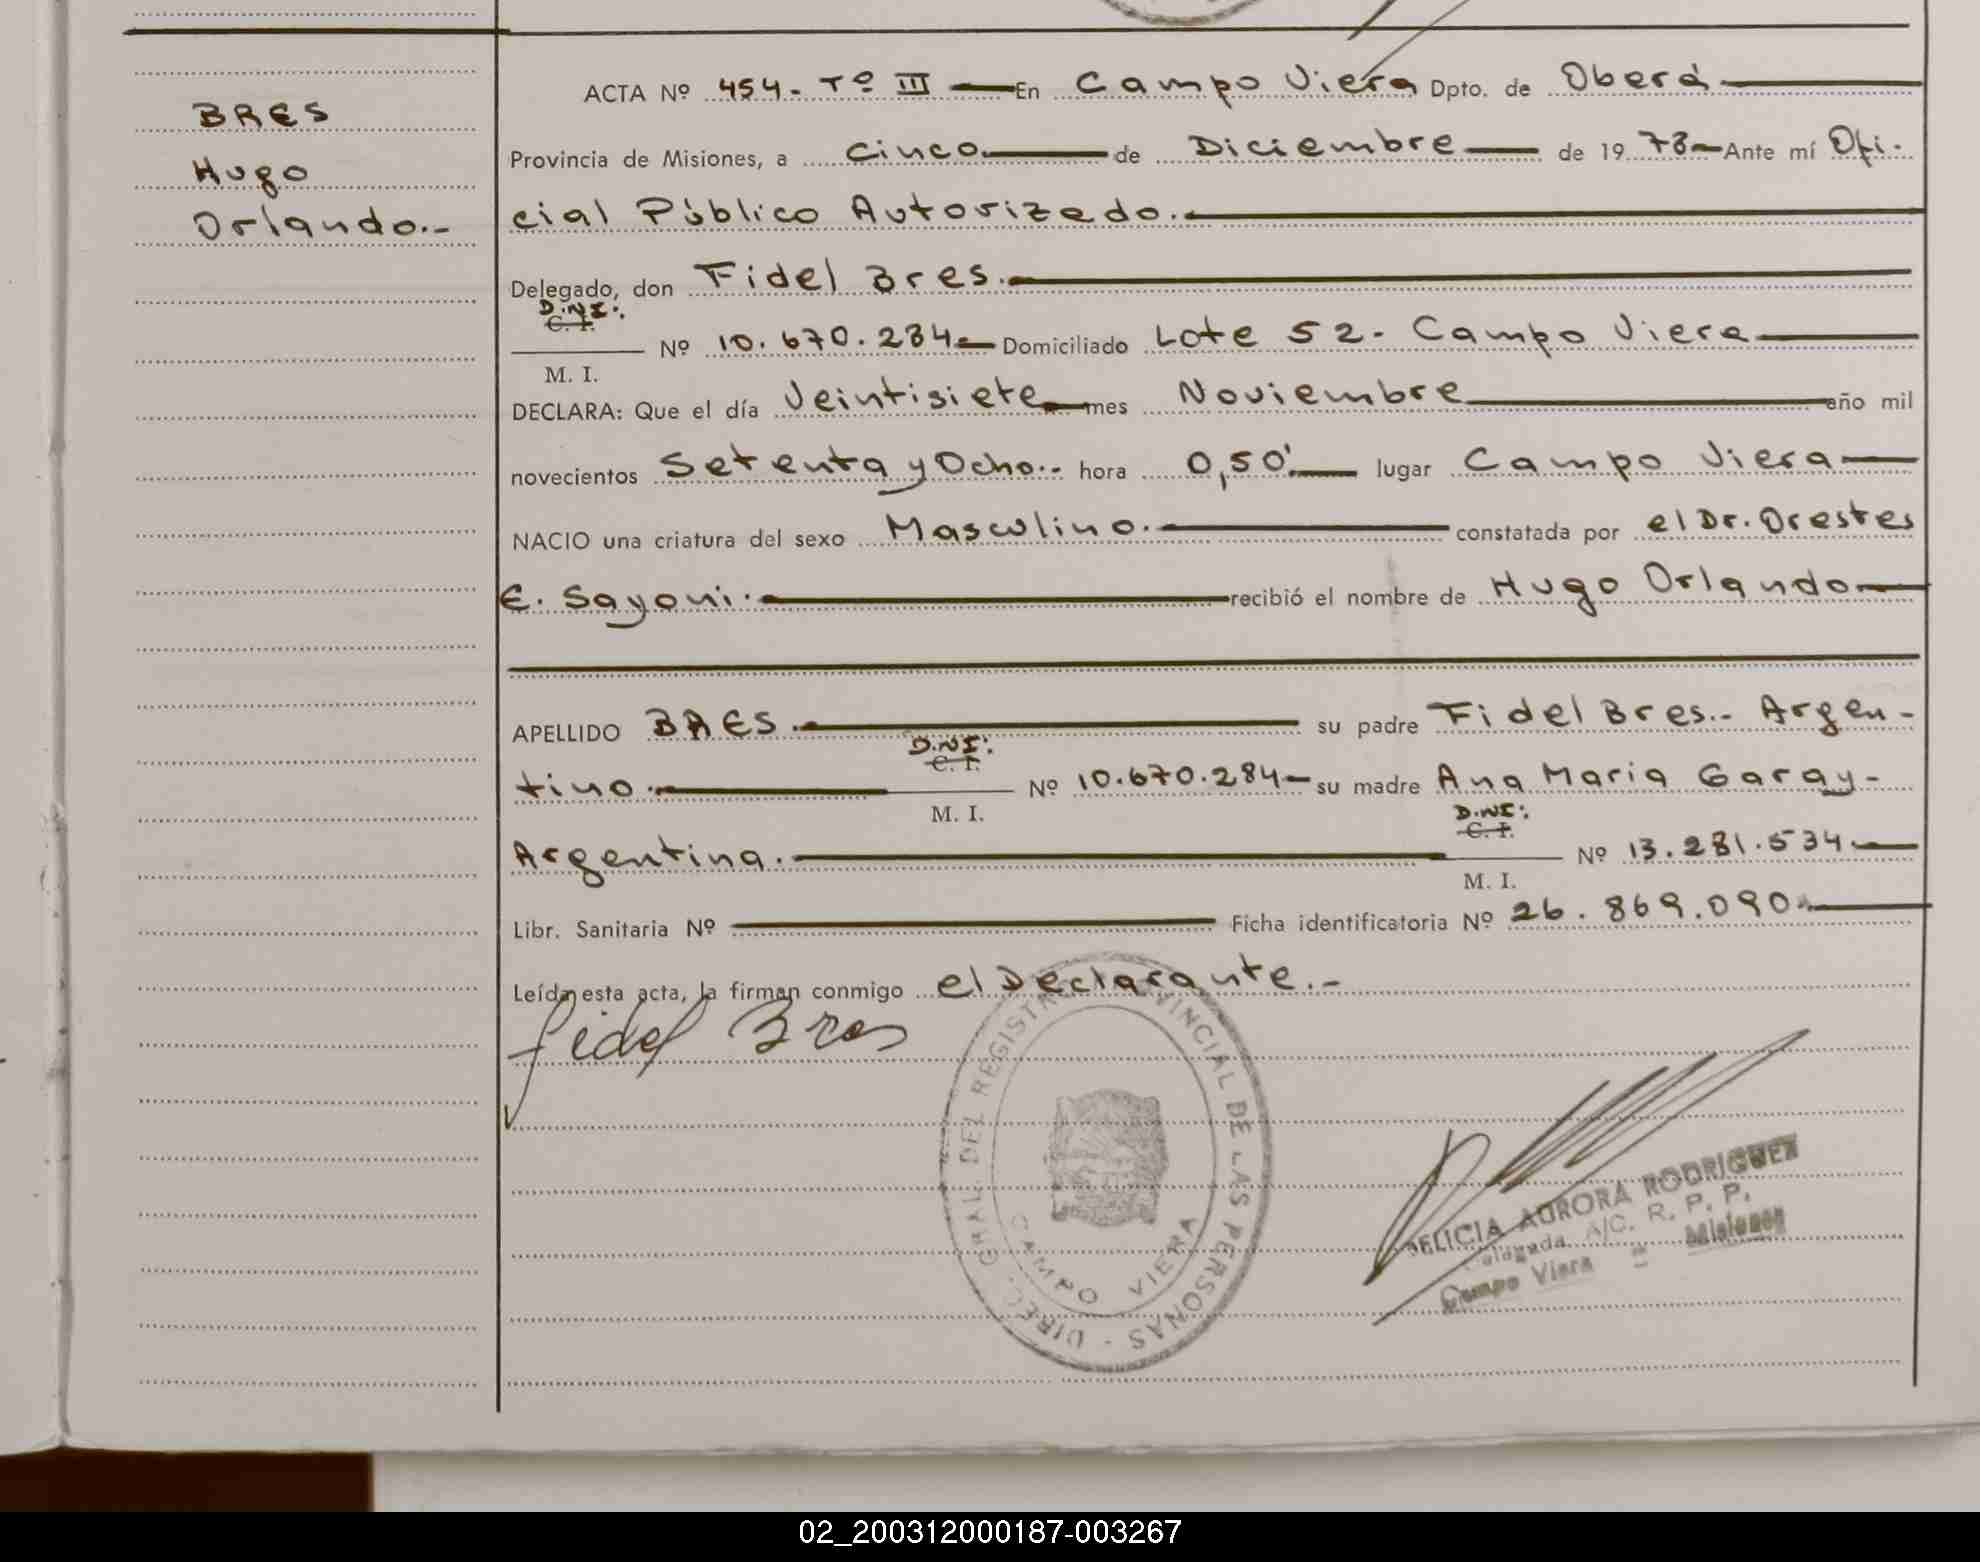 BRES
Hugo
Orlando.-
ACTA Nº 454.- Tº III — En Campo Viera Dpto. de Oberá
Provincia de Misiones, a Cinco de Diciembre de 1978 Ante mí Ofi-
cial Público Autorizado.-
Delegado, don Fidel Bres.
D.N.I.
C. I.
M. I.
Nº 10.670.284 Domiciliado Lote 52 - Campo Viera
DECLARA: Que el día Veintisiete mes Noviembre año mil
novecientos Setenta y Ocho.- hora 0,50' lugar Campo Viera
NACIO una criatura del sexo Masculino. constatada por el Dr. Orestes
E. Sayoni. recibió el nombre de Hugo Orlando
APELLIDO BRES. su padre Fidel Bres.- Argen-
tino.
D.N.I.
C. I.
M. I.
Nº 10.670.284- su madre Ana Maria Garay-
Argentina.
D.N.I.
C. I.
M. I.
Nº 13.281.534
Libr. Sanitaria Nº Ficha identificatoria Nº 26.869.090
Leída esta acta, la firman conmigo el Declarante.-
Fidel Bres
DIREC. GRAL. DEL REGISTRO PROVINCIAL DE LAS PERSONAS -
CAMPO VIERA
FELICIA AURORA RODRIGUEZ
Delegada A/C. R. P. P.
Campo Viera = Misiones
02_200312000187-003267